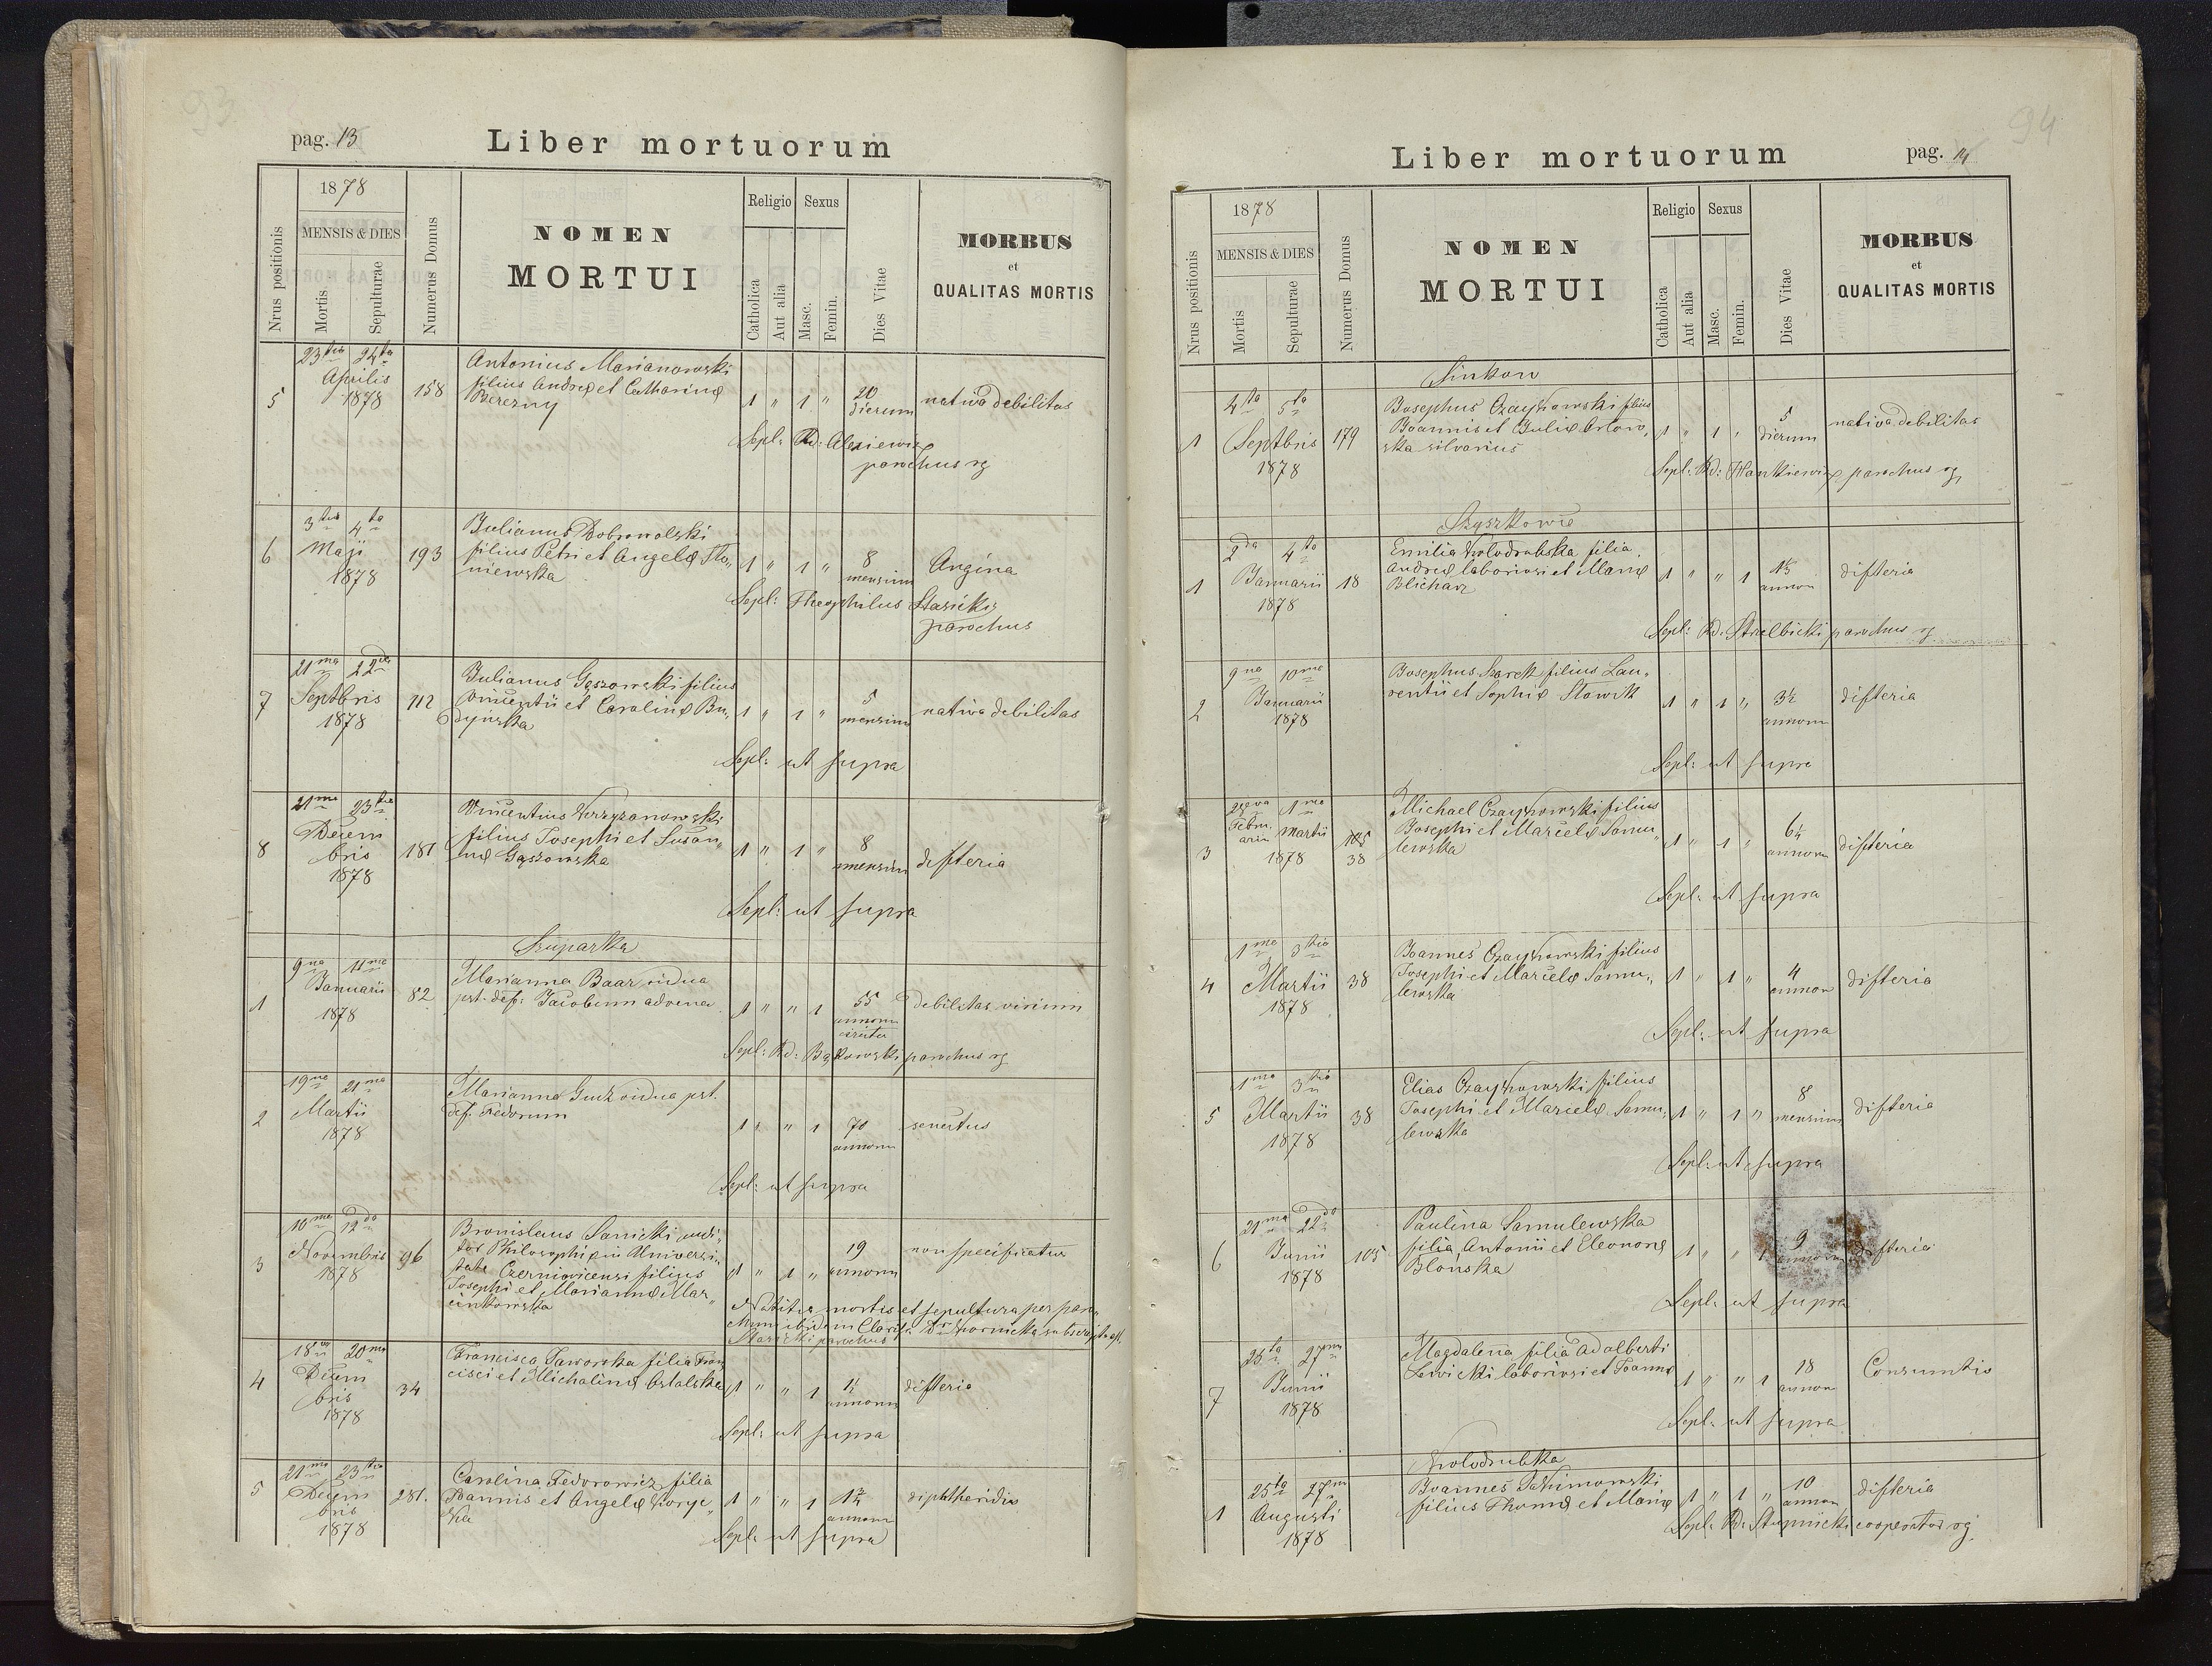 93
pag. 13
Liber mortuorum
Nrus positionis
1878
MENSIS & DIES
Mortis
Sepulturae
Numerus Domus
NOMEN
MORTUI
Religio
Catholica
Aut alia
Sexus
Masc.
Femin.
Dies Vitae
MORBUS
et
QUALITAS MORTIS
5
23tia 24ta
Aprilis
1878
158
Antonius Marianowski
filius Andreæ et Catharinæ
Berezny
1 " 1 "
20
dierum
nativa debilitas
Sepl: Rd: Alexiewicz
parochus rg
6
3tia 4ta
Maji
1878
193
Julianus Dobrowolski
filius Petri et Angelæ Sło„
niewska
1 " 1 "
8
mensium
Angina
Sepl: Theophilus Stasicki
parochus
7
21ma 22da
Septbris
1878
112
Julianus Gąszowski filius
Vincentii et Carolinæ Bu„
dyńska
1 " 1 "
5
mensium
nativa debilitas
Sepl: ut supra
8
21ma 23tia
Decem
bris
1878
181
Vincentius Krzyzanowski
filius Josephi et Susan„
næ Gąszowska
1 " 1 "
8
mensium
difteria
Sepl: ut supra
Szuparka
1
9na 11ma
Januarii
1878
82
Marianna Baar vidua
pst. def: Jacobum advena
1 " " 1
55
annorum
circiter
debilitas virium
Sepl: Rd: Bąkowski parochus rg
2
19na 21ma
Martii
1878
Marianna Guck vidua pst.
def. Fedorum
1 " " 1
70
annorum
senectus
Sepl: ut supra
3
10ma 12da
Novembris
1878
96
Bronislaus Sanicki audi„
tor Philosophiæ in Universi„
tate Czerniovicensi filius
Josephi et Mariannæ Mar„
cinkowska
1 " 1 "
19
annorum
non specificatur
Notitia mortis et sepultura per par„
parochus
4
18va 20ma
Decem
bris
1878
34
Francisca Jaworska filia Fran„
cisci et Michalinæ Ostalska
1 " " 1
1½
annorum
difteria
Sepl: ut supra
5
21ma 23tia
Decem
bris
1878
281.
Carolina Fedorowicz filia
Joannis et Angelæ Koryc„
ka
1 " " 1
annorum
diphtheridis
Sepl: ut supra
94
Liber mortuorum
pag. 14
Nrus positionis
1878
MENSIS & DIES
Mortis
Sepulturae
Numerus Domus
NOMEN
MORTUI
Religio
Catholica
Aut alia
Sexus
Masc.
Femin.
Dies Vitae
MORBUS
et
QUALITAS MORTIS
Sinkow
1
4ta 5ta
Septbris
1878
179
Josephus Czaykowski filius
Joannis et Juliæ Orłow„
ska silvarius
1 " 1 "
5
dierum
nativa debilitas
Sepl: Rd: Hankiewicz parochus rg
Szyszkowce
1
2da 4ta
Januarii
1878
18
Emilia Kołodrubska filia
Andreæ laboriosi et Mariæ
Blicharz
1 " " 1
annorum
difteria
Sepl: Rd: Strelbicki parochus rg
2
9na 10ma
Januarii
1878
Josephus Szarek filius Lau„
rentii et Sophiæ Sławik
1 " 1 "
3½
annorum
difteria
Sepl: ut supra
3
28va 1ma
Febru
arii Martii
1878
105
38
Michael Czaykowski filius
Josephi et Marcelæ Samu„
lewska
1 " 1 "
annorum
difteria
Sepl: ut supra
4
1ma 3tia
Martii
1878
38
Joannes Czaykowski filius
Josephi et Marcelæ Samu„
lewska
1 " 1 "
4
annorum
difteria
Sepl: ut supra
5
1ma 3tia
Martii
1878
38
Elias Czaykowski filius
Josephi et Marcelæ Samu„
lewska
1 " 1 "
8
mensium
difteria
Sepl: ut supra
6
21ma 22do
Junii
1878
105
Paulina Samulewska
filia Antonii et Eleonoræ
Blonska
1 " " 1
9
annorum
difteria
Sepl: ut supra
7
27ma
Junii
1878
Magdalena filia Adalberti
Lewicki laboriosi et Joannæ
1 " " 1
18
annorum
Consumtio
Sepl: ut supra
Kołodrubka
1
25ta 27ma
Augusti
1878
Joannes Jakimowski
filius Thomæ et Mariæ
1 " 1 "
10
annorum
difteria
Sepl: Rd: Stupnicki cooperator rg